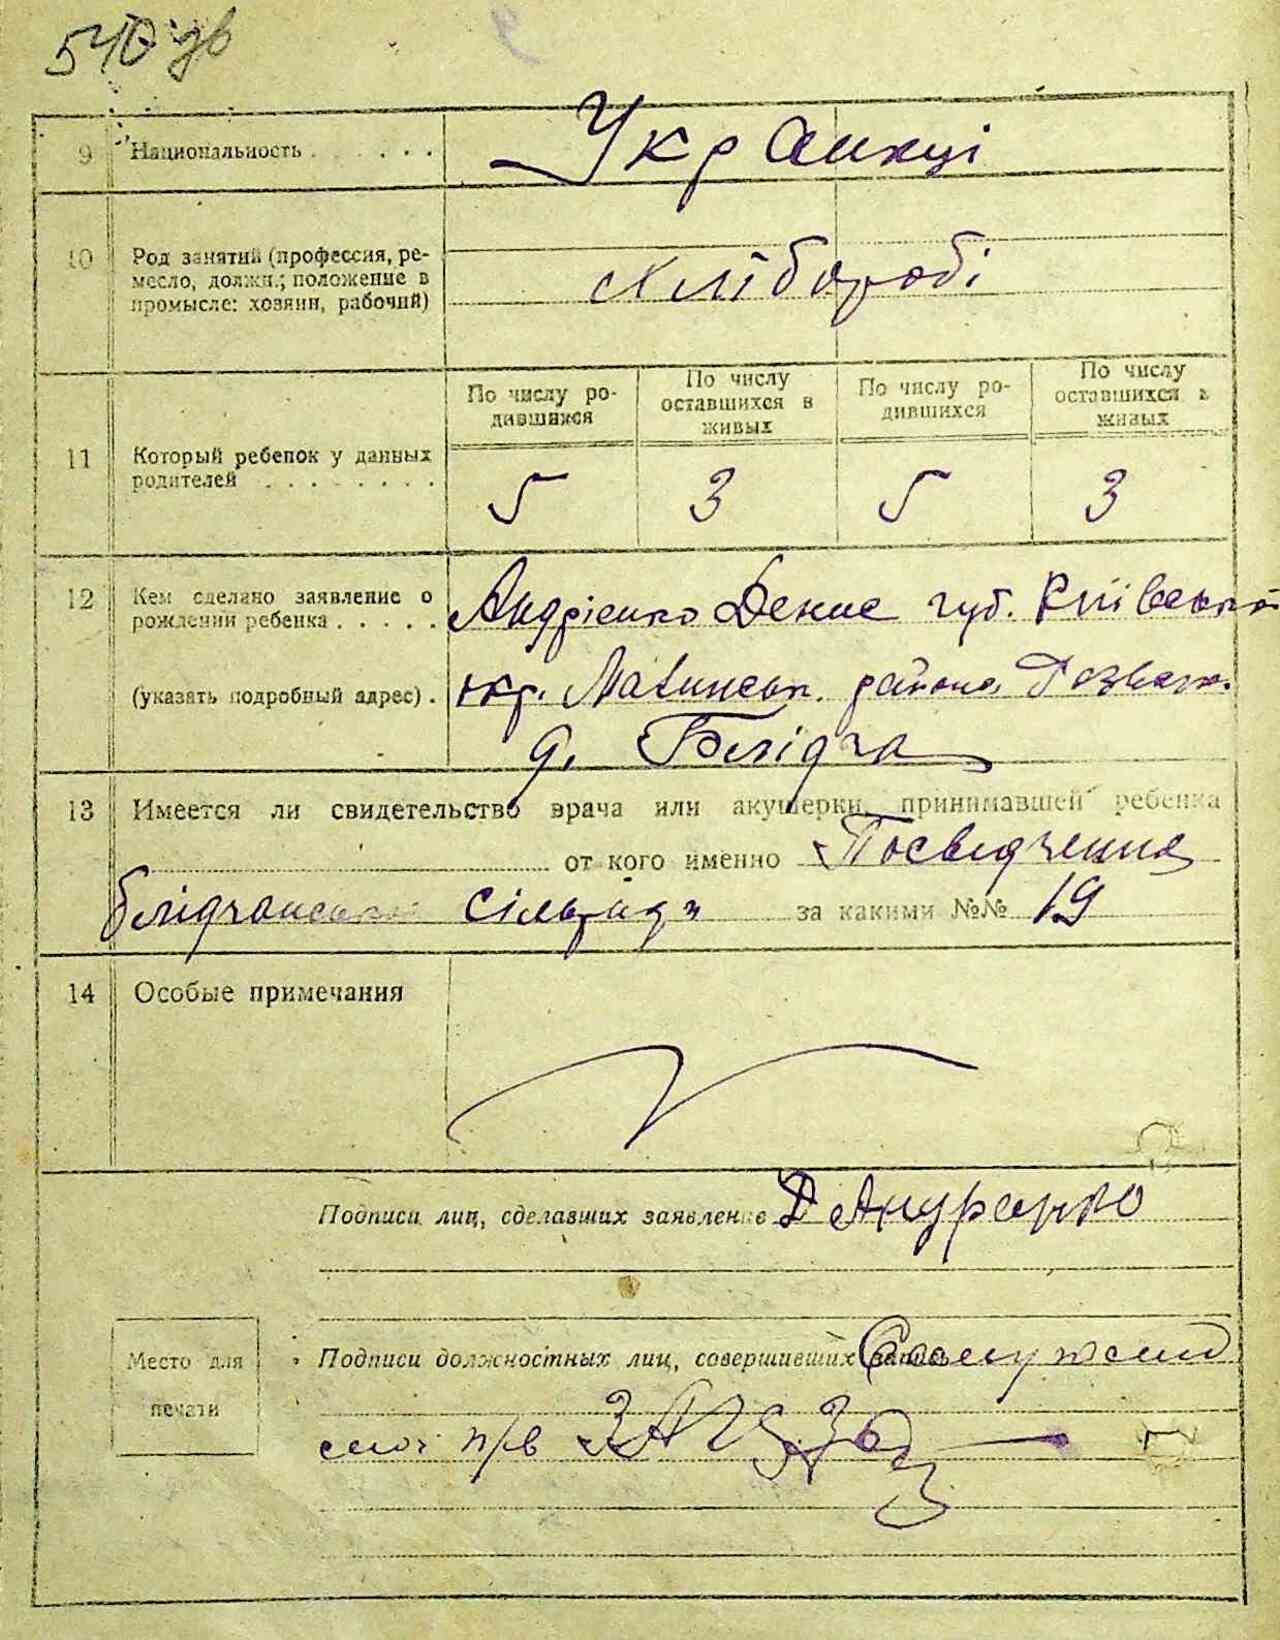 540 зв
9 Национальность Українці
10 Род занятий (профессия, ре-
месло, должн.; положение в
промысле: хозяин, рабочий)
хлібороби
По числу ро-
дившихся
По числу
оставшихся в
живых
По числу ро-
дившихся
По числу
оставшихся в
живых
11 Который ребенок у данных
родителей
5 3 5 3
12 Кем сделано заявление о
рождении ребенка
Андрієнко Денис губ. Київської
(указать подробный адрес)
окр. Малинськ. района Розваж.
д. Блідча
13 Имеется ли свидетельство врача или акушерки, принимавшей ребенка
от кого именно Посвідчення
блідчанської сільради за какими №№ 19
14 Особые примечания
Подписи лиц, сделавших заявление Д Андрієнко
Подписи должностных лиц, совершивших запись
Место для
печати